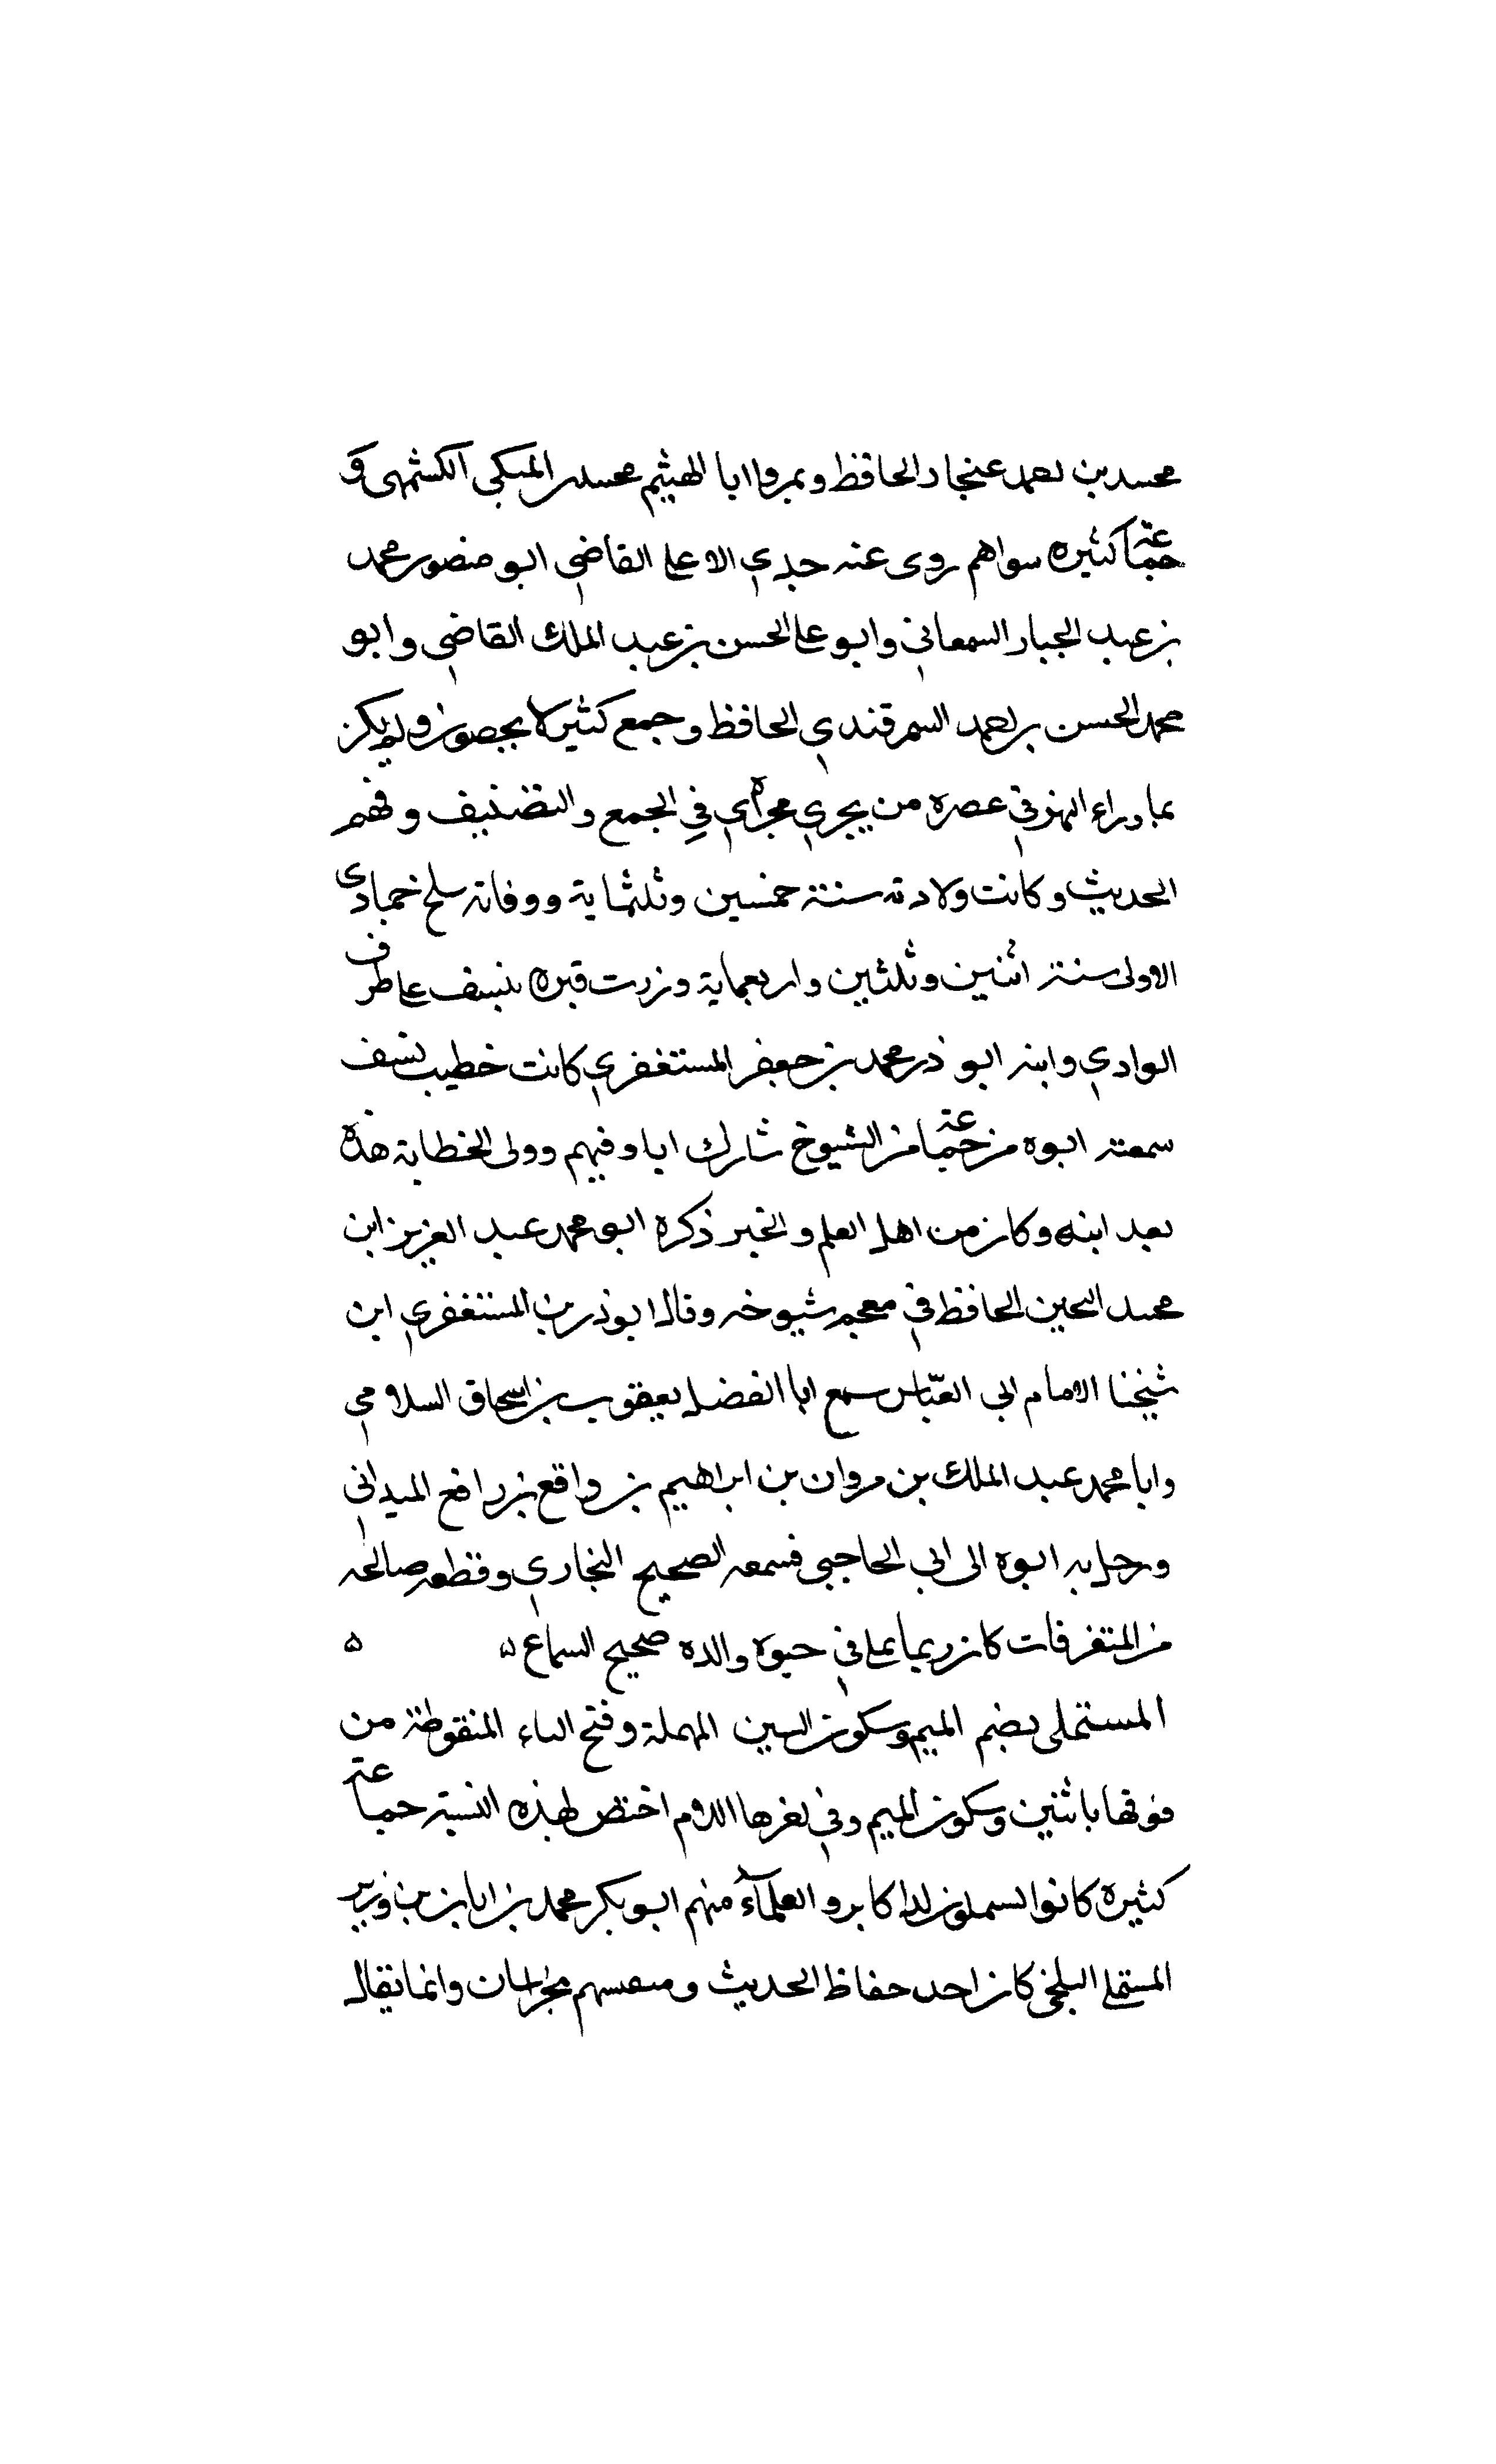 محمد بن احمد غنجار الحافظ وبمرو ابا الهيثم محمد بن المكي الكشميهني و
جماعة كثيره سواهم روى عنه جدي الاعلى القاضي ابو منصور محمد
بن عبد الجبار السمعاني وابو على الحسن بن عبد الملك القاضي وابو
محمد الحسن بن احمد السمرقندي الحافظ وجمع كثير لا يحصون ولم يكن
بما وراء النهر في عصره من يجري مجراه في الجمع والتصنيف وفهم
الحديث وكانت ولادته سنة خمسين وثلثماية ووفاته سلخ جمادى
الاولى سنة اثنين وثلثين واربعماية وزرت قبره بنسف على طرف
الوادي وابنه ابو ذر محمد بن جعفر المستغفري كانت خطيب نسف
سمعته ابوه من جماعة من الشيوخ شارك اباه فيهم وولى الخطابة هذه
بعد ابنه وكان من اهل العلم والخير ذكره ابو محمد عبد العزيز ابن
محمد النحين الحافظ في معجم شيوخه وقال ابو ذر بن المستغفري ابن
شيخنا الامام ابي العبّاس سمع ابا الفضل يعقوب بن اسحاق السلامي
وابا محمد عبد الملك بن مروان بن ابراهيم بن واقع بن رافع الميداني
ورحل به ابوه الى ابي الحاجبي فسمعه الصحيح البخاري وقطعه صالحه
من المتفرقات كان ربما يملي في حيوة والده صحيح السماع ۵ ۵
المستملى بضم الميم وسكون السين المهملة وفتح التاء المنقوطة من
فوقها باثنين وسكون الميم وفي اخرها اللام اختص لهذه النسبة جماعة
كثيرة كانوا يستملون للاكابر والعلمآء منهم ابو بكر محمد بن ابان بن وزير
المستملي البلخي كان احد حفاظ الحديث بخراسان وانما يقال